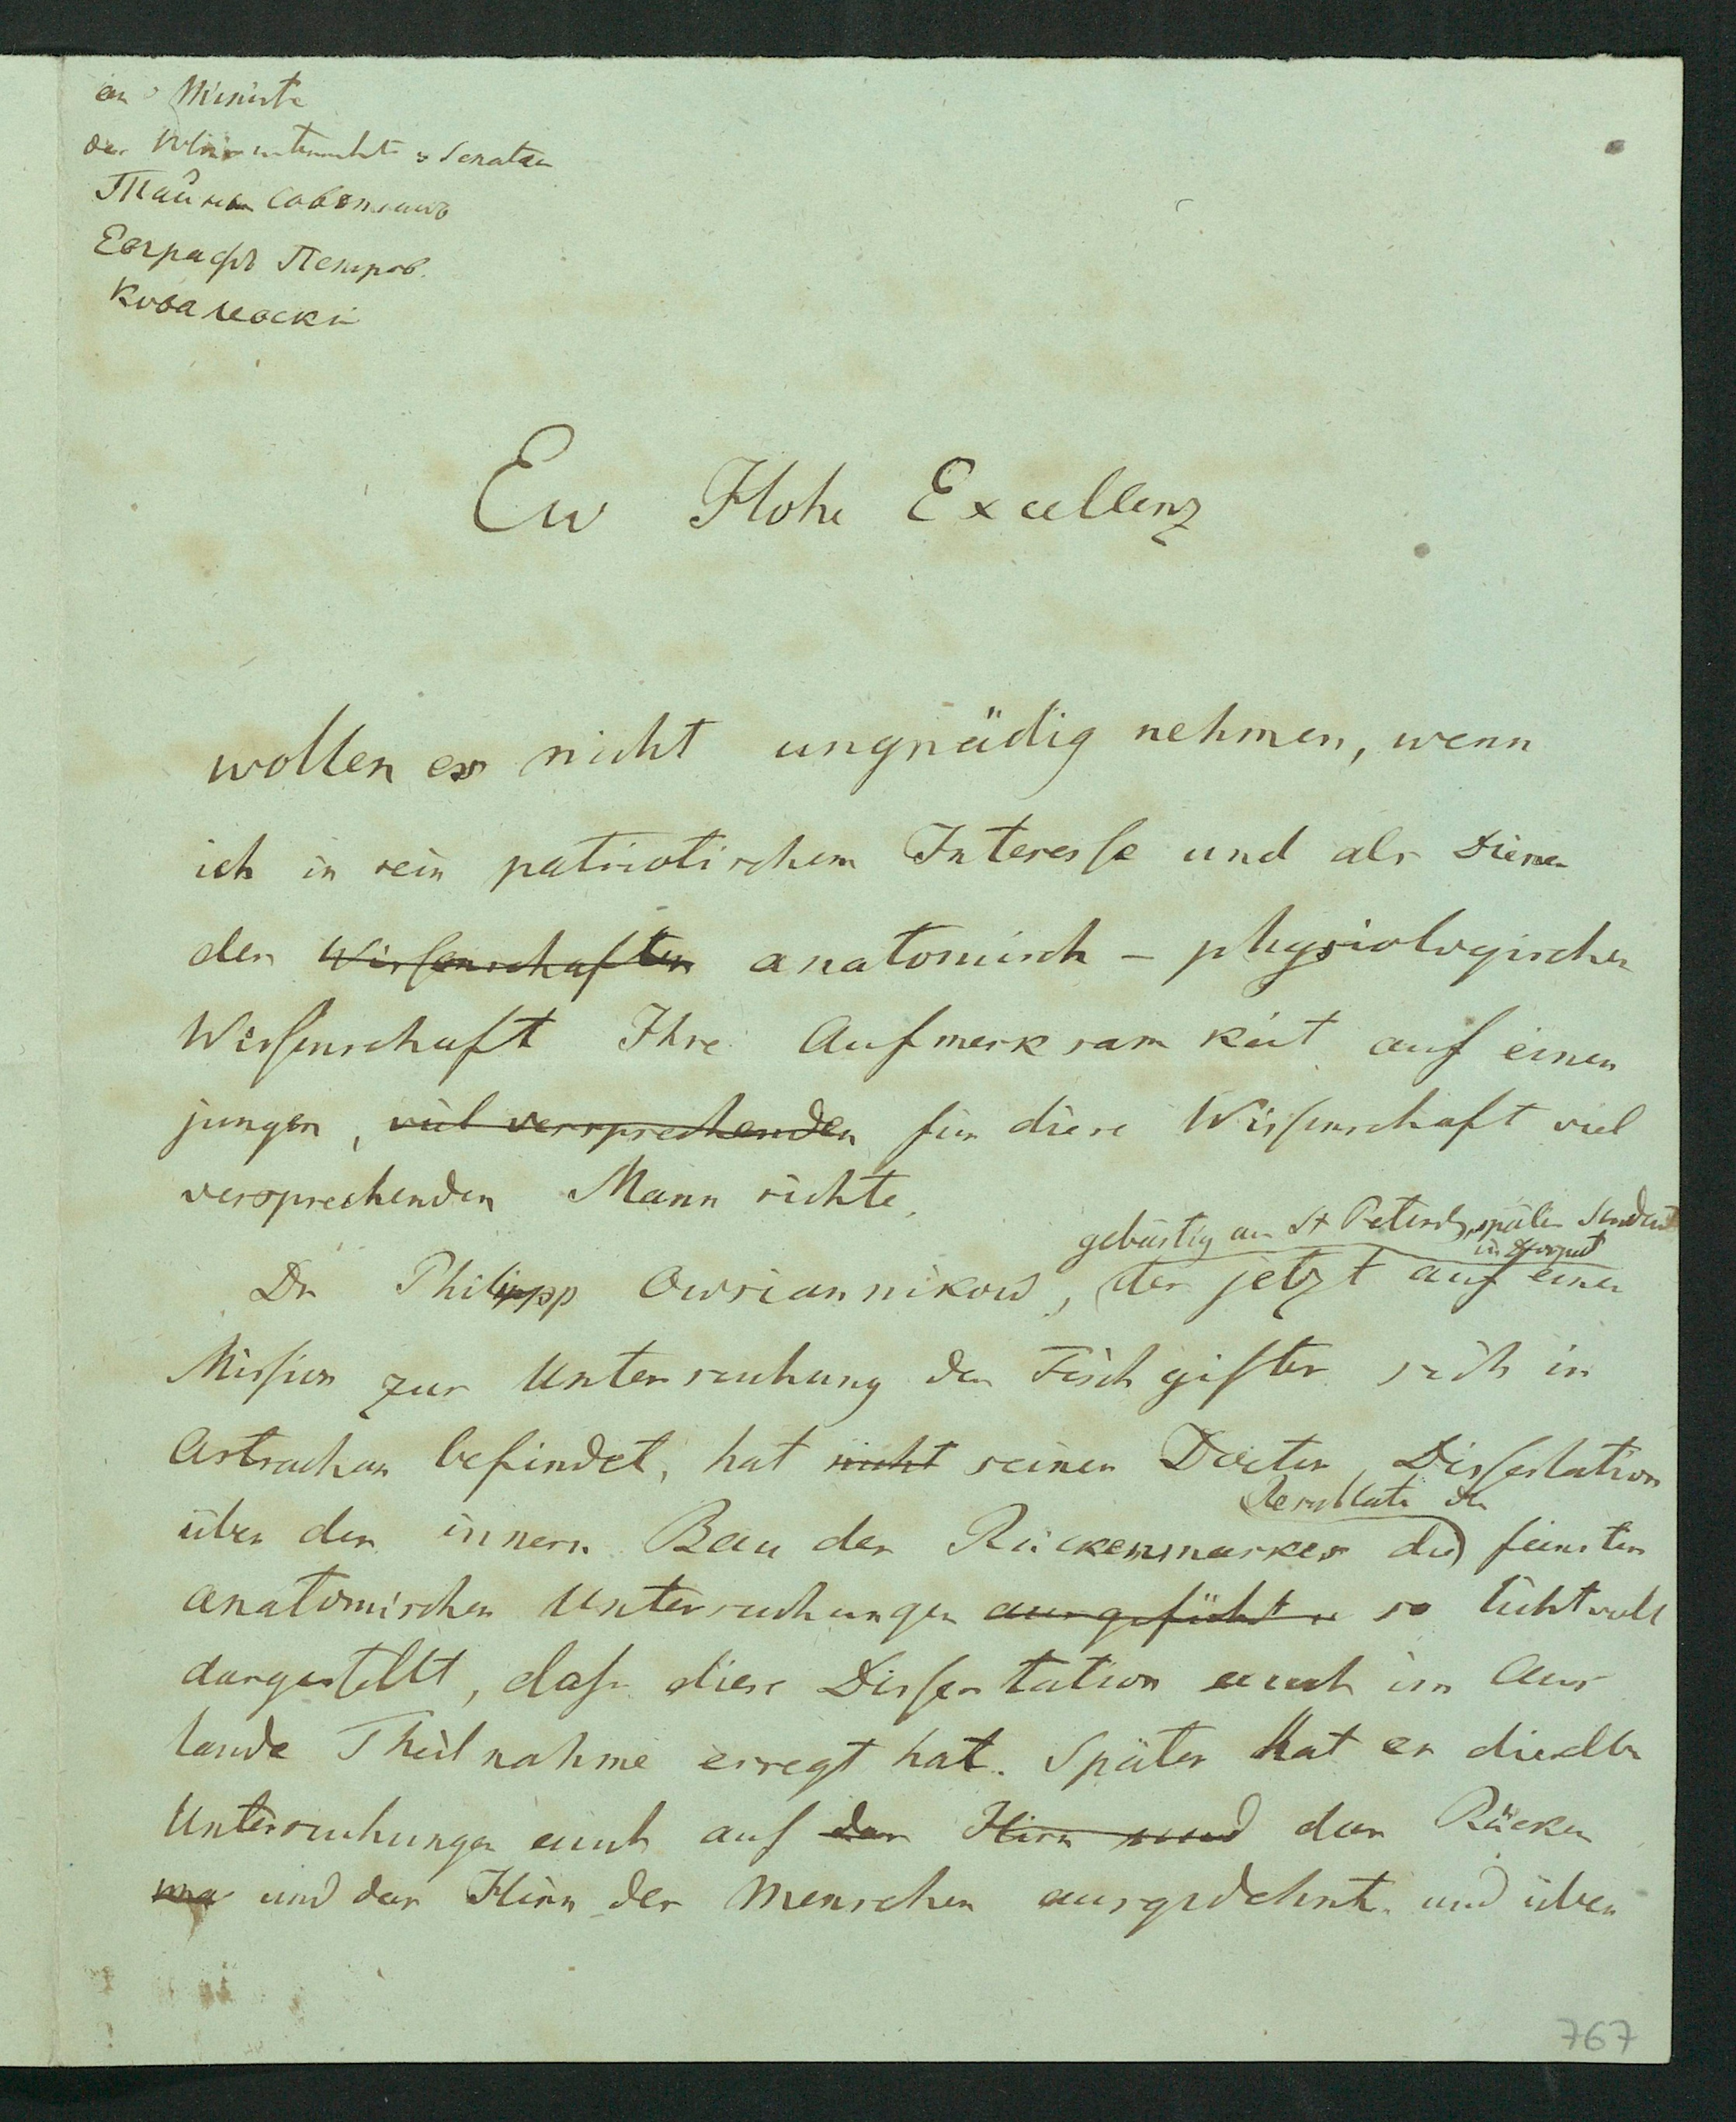 an Ministe
der Senaten
Тайнн Советникъ
Евграфъ Петров.
Ковалевскi
Ew Hohe Excellenz
wollen es nicht ungnädig nehmen, wenn
ich in rein patriotischem Interesse und als Diener
der Wissenschaften anatomisch - physiologischen
Wissenschaft Ihre Aufmerksamkeit auf einen
jungen, viel versprechenden für diese Wissenschaft viel
versprechenden Mann richte.
gebürtig aus St Petersb., später Student
in Dorpat
Dr Philipp Owsiannikow, der jetzt auf einer
Mission zur Untersuchung des Fischgiftes sich in
Astrachan befindet, hat nicht seiner Doctor Dissertation
Resultate der
über den innern Bau des Rückenmarkes die feinsten
anatomischen Untersuchungen ausgeführt u so lichtvoll
dargestellt, dass diese Dissertation auch im Aus
lande Theilnahme erregt hat. Später hat er dieselben
Untersuchungen auch auf das Hirn und den Rücken
ma und das Hirn des Menschen ausgedehnt und über
767